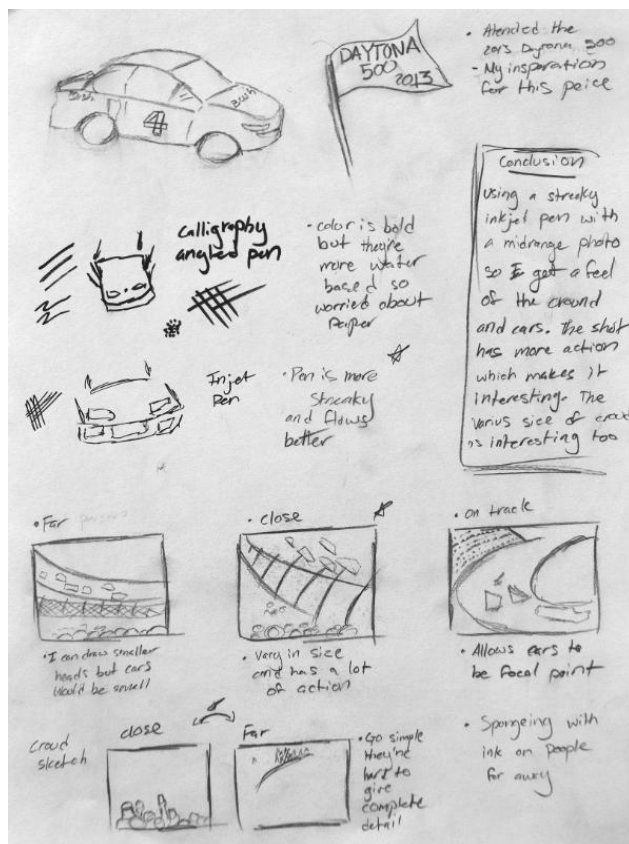 DAYTONA
500
2013
• Atended the
2013 Daytona 500
- My insparation
for this peice
4
Conclusion
using a streaky
inkjet pen with
a midrange photo
so I get a feel
of the cround
and cars. The shot
has more action
which makes it
interesting. The
varius sice of croud
is interesting too
calligraphy
angled pen
• color is bold
but they're
more water
based so
worried about
paper
Injet
pen
• Pen is more
streaky
and flows
better
• Far persons
• close
• on track
• I can draw smaller
heads but cars
would be small
• Vary in sice
and has a lot
of action
• Allows cars to
be focal point
Croud
sketch
close
Far
• Go simple
they're
hard to
give
complete
detail
• Spongeing with
ink on people
far away